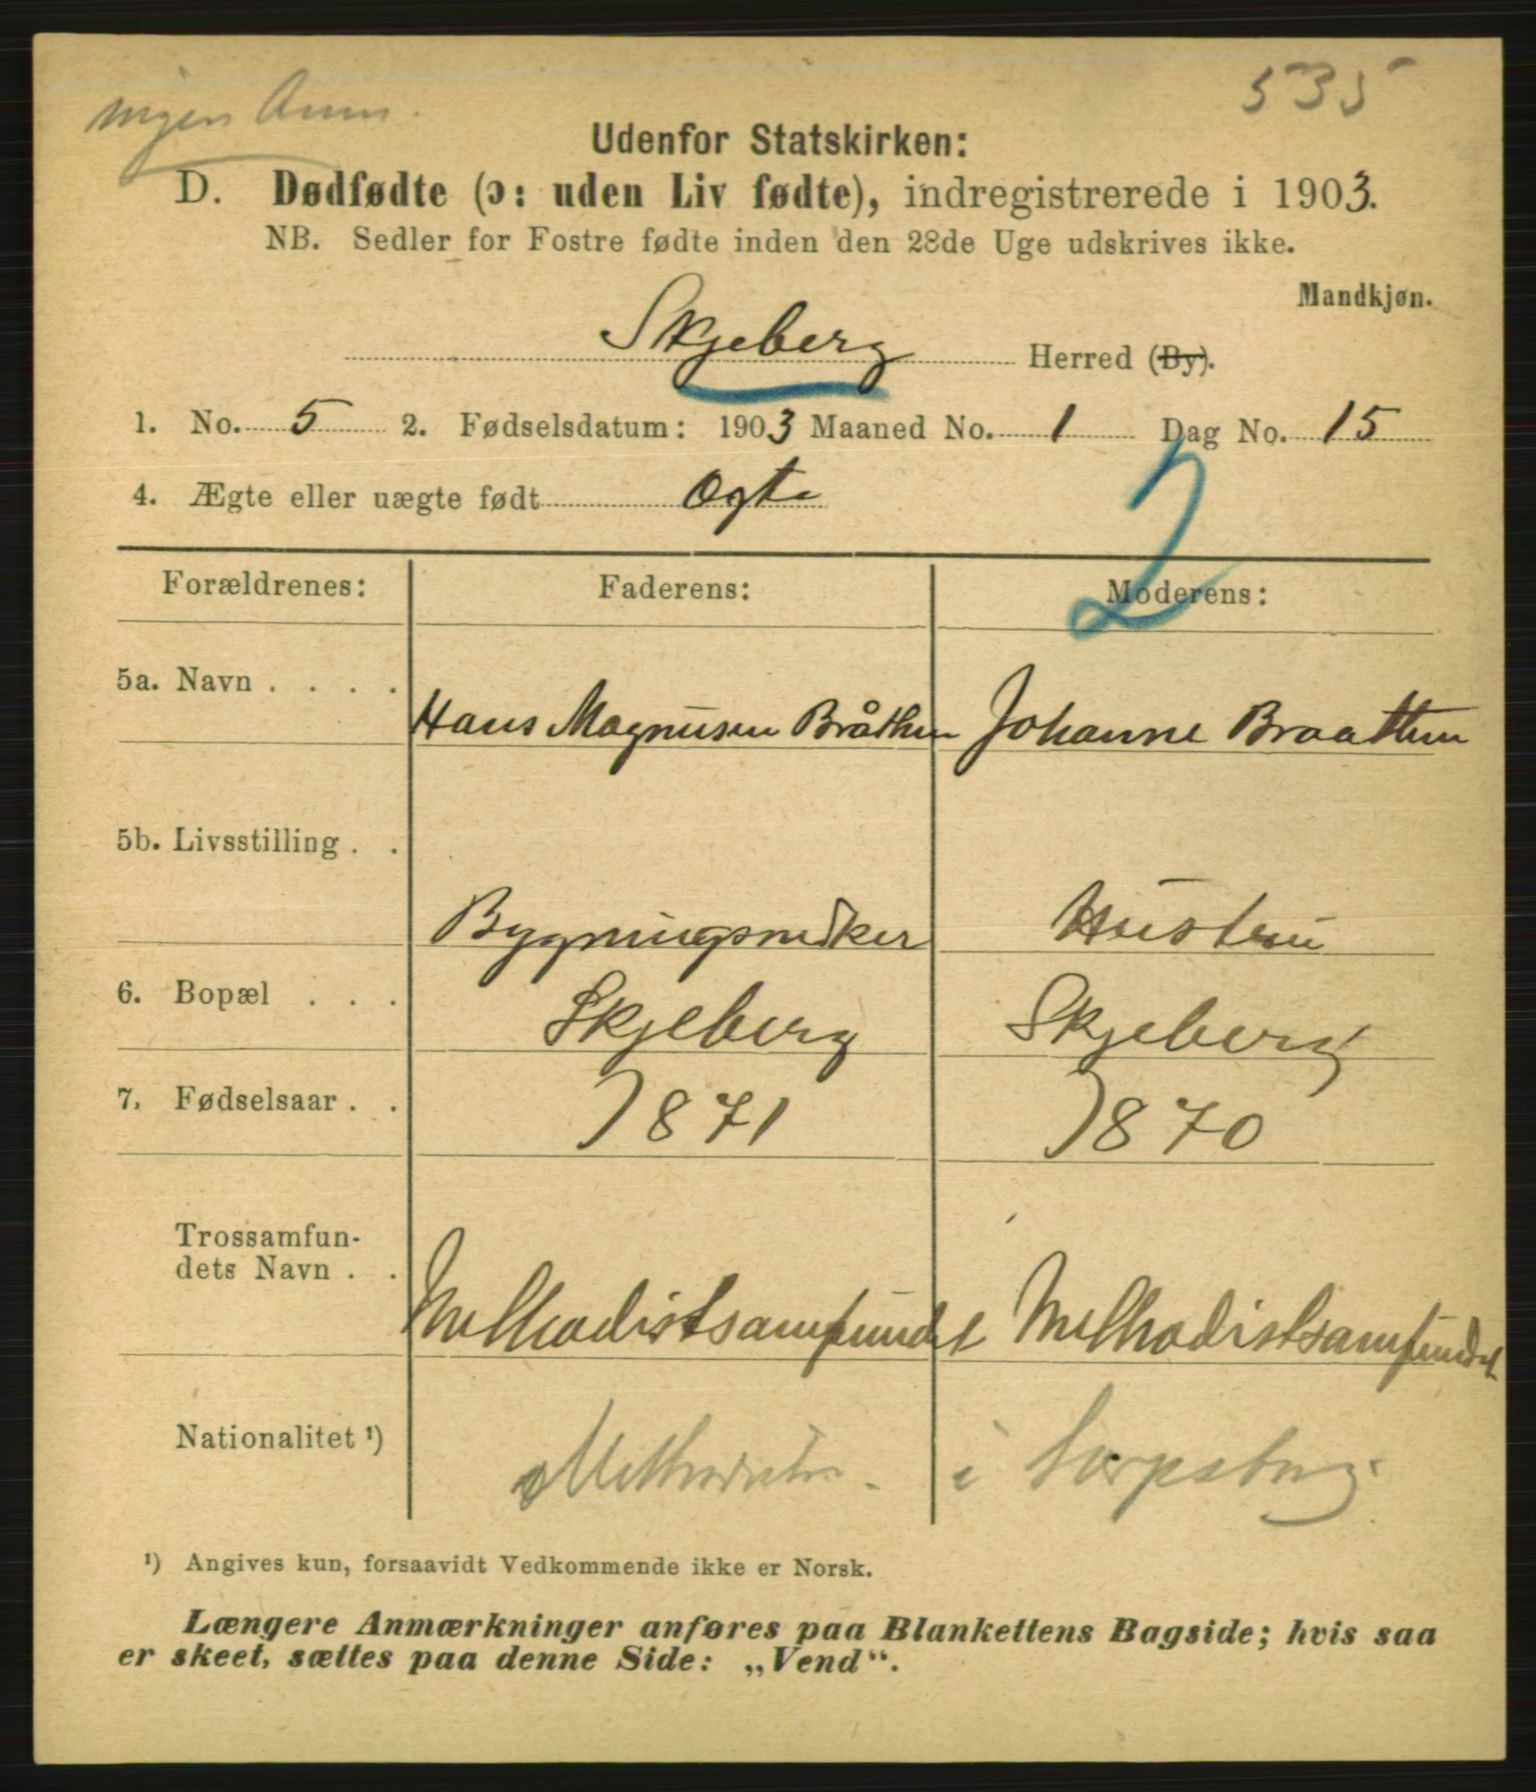 535
Ingen Anm.
Udenfor Statskirken:
D. Dødfødte (ɔ: uden Liv fødte), indregistrerede i 1903.
NB. Sedler for Fostre fødte inden den 28de Uge udskrives ikke.
Mandkjøn.
Skjeberg Herred (By).
1. No. 5 2. Fødselsdatum: 1903 Maaned No. 1 Dag No. 15
4. Ægte eller uægte født Ægte
2
Forældrenes: Faderens: Moderens:
5a. Navn . . . . Hans Magnusen Bråthen Johanne Braathen
5b. Livsstilling . . Bygningssnedker Hustru
6. Bopæl . . . Skjeberg Skjeberg
7. Fødselsaar . . 1871 1870
Trossamfun-
dets Navn . . Methodistsamfundet Methodistsamfundet
Nationalitet ¹) Methodister. i Sarpsborg.
¹) Angives kun, forsaavidt Vedkommende ikke er Norsk.
Længere Anmærkninger anføres paa Blankettens Bagside; hvis saa
er skeet, sættes paa denne Side: „Vend“.